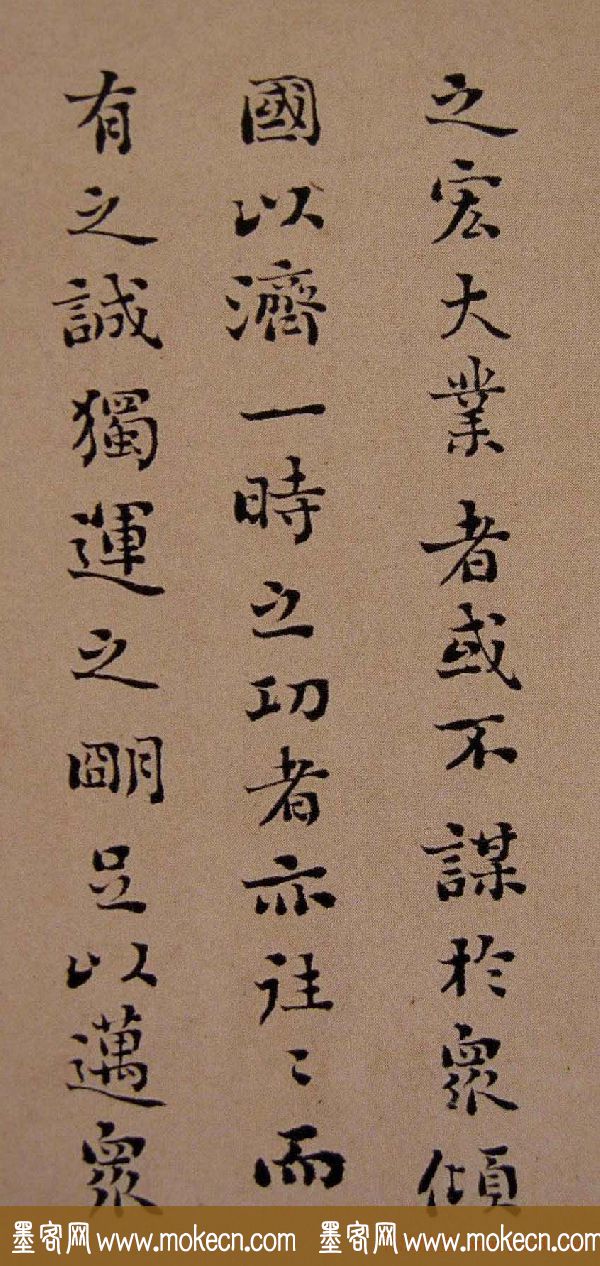 之宏大業者或不謀於眾傾
國以濟一時之功者亦往〻而
有之誠獨運之明足以邁眾
墨客网 www.mokecn.com 墨客网 www.mokecn.com